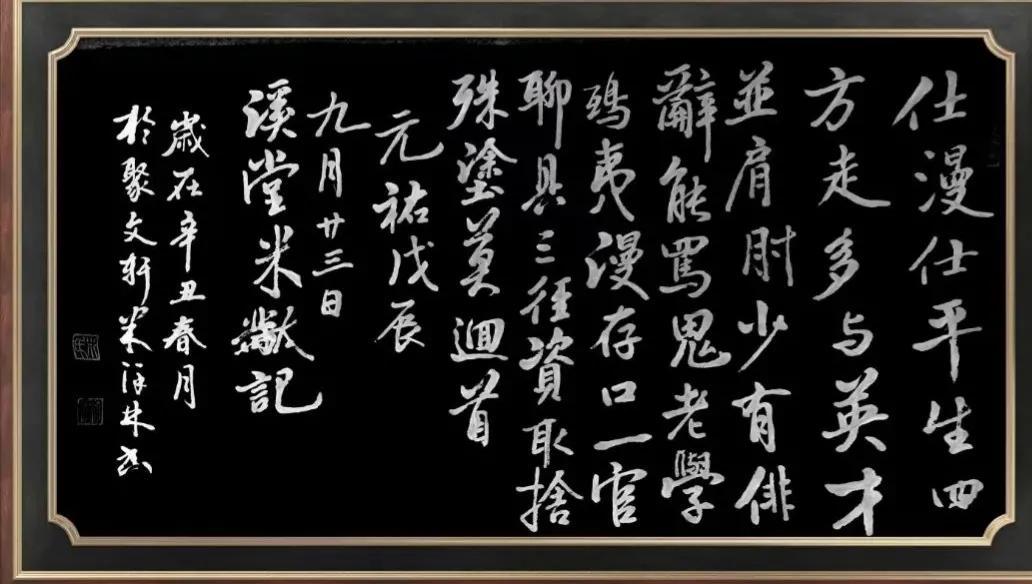 仕漫仕平生四
方走多与英才
並肩肘少有俳
辭能罵鬼老學
鴟夷漫存口一官
聊具三径資取捨
殊塗莫迴首
元祐戊辰
九月廿三日
溪堂米黻記
歲在辛丑春月
於聚文軒米泽林书